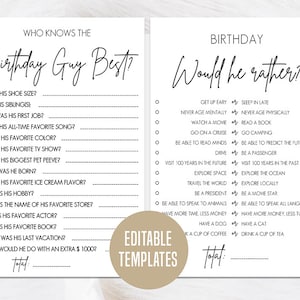 WHO KNOWS THE
Birthday Guy Best?
HIS SHOE SIZE?
HIS SIBLINGS?
WAS HIS FIRST JOB?
HIS ALL-TIME FAVORITE SONG?
HIS FAVORITE COLOR?
HIS FAVORITE TV SHOW?
HIS BIGGEST PET PEEVE?
WAS HE BORN?
HIS FAVORITE ICE CREAM FLAVOR?
HIS HOBBY?
IS THE NAME OF HIS FAVORITE STORE?
HIS FAVORITE ACTOR?
HIS FAVORITE BOOK?
WAS HIS LAST VACATION?
WOULD HE DO WITH AN EXTRA $ 1000?
Total:
BIRTHDAY
Would he rather?
GET UP EARLY or SLEEP IN LATE
NEVER AGE MENTALLY or NEVER AGE PHYSICALLY
WATCH A MOVIE or READ A BOOK
GO ON A CRUISE or GO CAMPING
BE ABLE TO READ MINDS or BE ABLE TO PREDICT THE FUT
DRIVE or BE A PASSENGER
VISIT 100 YEARS IN THE FUTURE or VISIT 100 YEARS IN THE PAST
EXPLORE SPACE or EXPLORE THE OCEAN
TRAVEL THE WORLD or EXPLORE LOCALLY
BE A PRESIDENT or BE A MOVIE STAR
BE ABLE TO SPEAK TO ANIMALS or BE ABLE TO SPEAK ALL LANG
HAVE MORE TIME, LESS MONEY or HAVE MORE MONEY, LESS T
HAVE A DOG or HAVE A CAT
A CUP OF COFFEE or DRINK A CUP OF TEA
Total:
EDITABLE
TEMPLATES